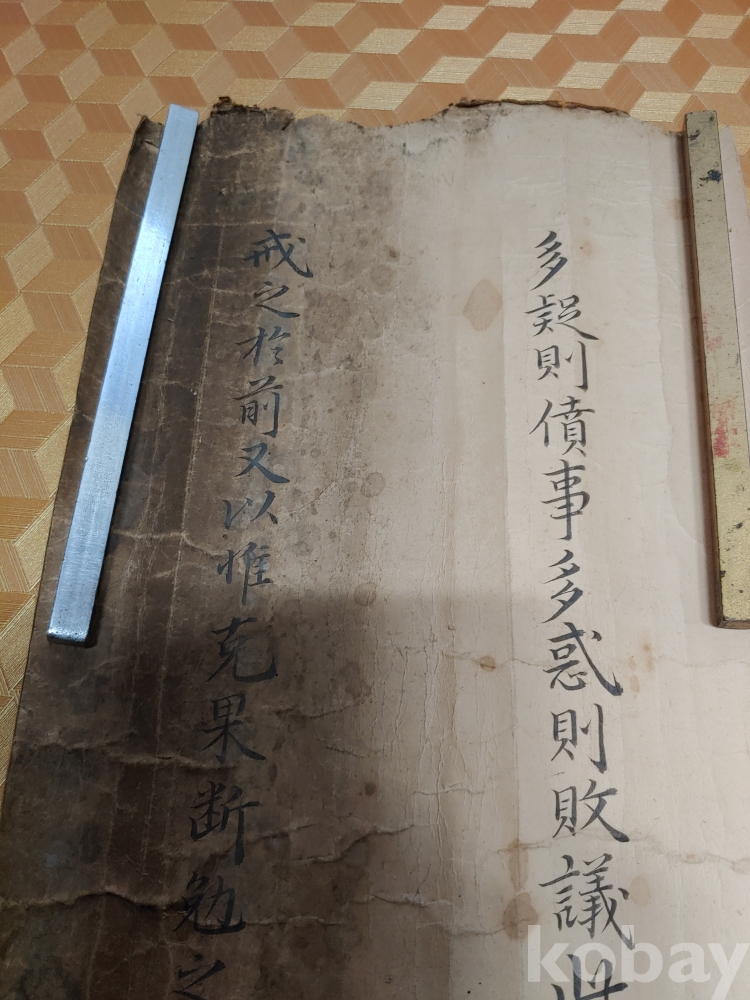 多疑則僨事多惑則敗議此
戒之於前又以惟克果断勉之
kobay